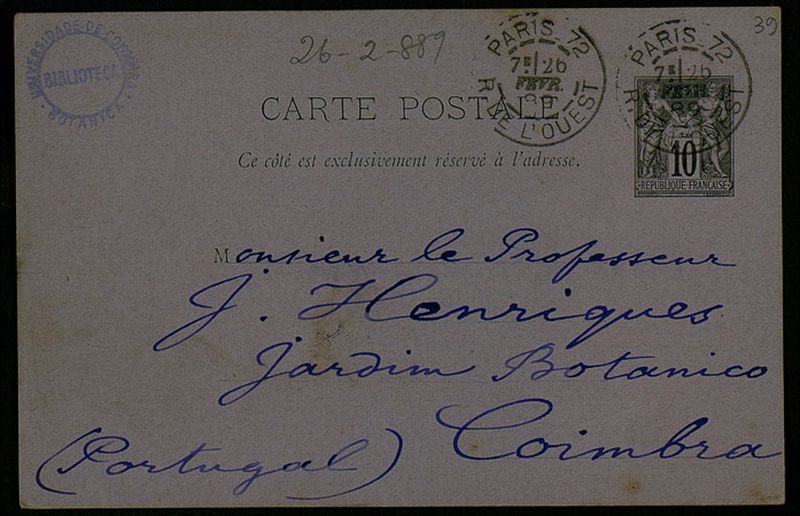 UNIVERSIDADE DE COIMBRA
BIBLIOTECA
BOTANICA
26-2-889
39
PARIS 72
7E 26
FEVR.
89
R. DE L'OUEST
PARIS 72
7E 26
FEVR.
89
CARTE POSTALE
Ce côté est exclusivement réservé à l'adresse.
10
RÉPUBLIQUE FRANÇAISE
Monsieur le Professeur
J. Henriques
Jardim Botanico
Coimbra
(Portugal)